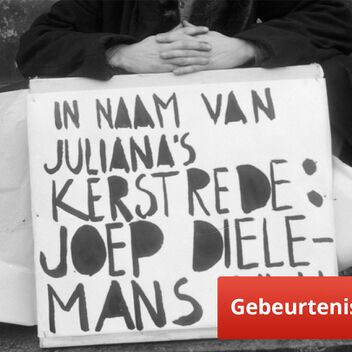 IN NAAM VAN
JULIANA'S
KERSTREDE:
JOEP DIELE-
MANS
Gebeurtenis